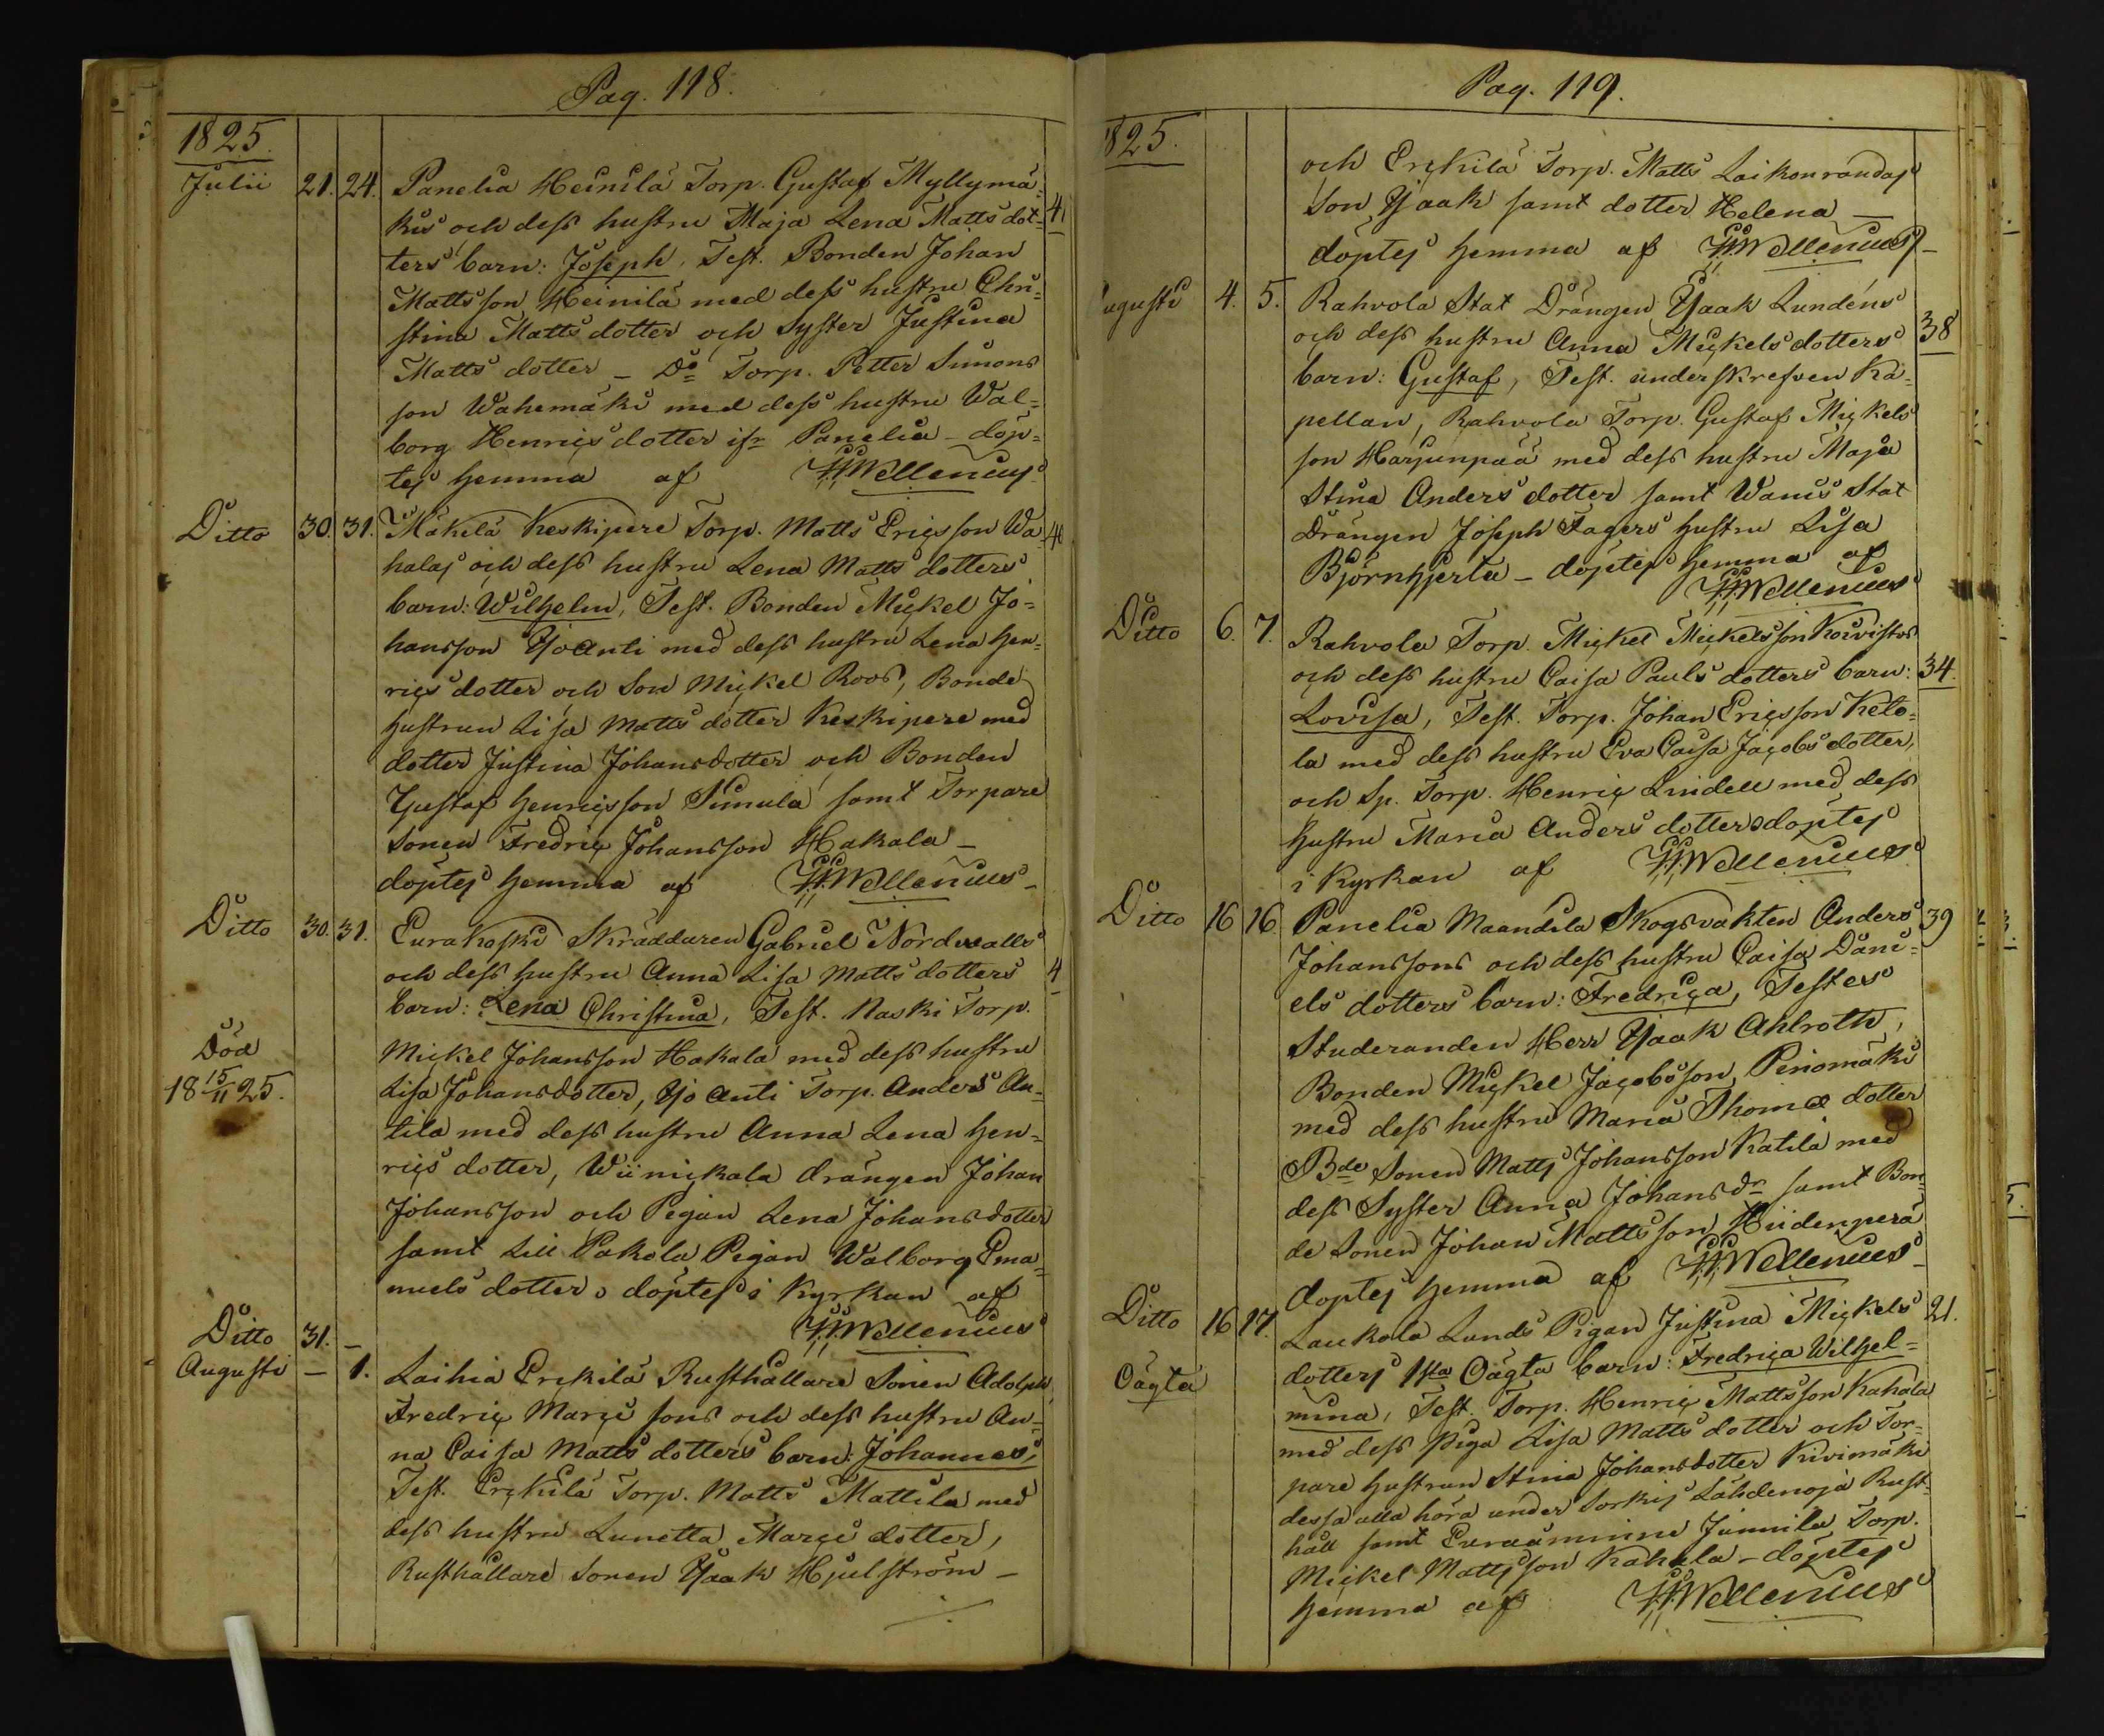 Pag. 118.
1825.
Julii 21. 24. Panelia Heinilä Torp. Gustaf Myllymä-
kis och dess hustru Maja Lena Matts dot- 41
ters barn: Joseph, Test. Bonden Johan
Mattsson Heinilä med dess hustru Chri-
stina Matts dotter och Syster Justina
Matts dotter – Do Torp. Petter Simons
son Wahemäki med dess hustru Wal-
borg Henrics dotter ifr Panelia – döp-
tes hemma af H.Wellenius
Ditto 30. 31. Mäkelä Keskipere Torp. Matts Ericsson Wa- 40
halas och dess hustru Lena Matts dotters
barn: Wilhelm, Test. Bonden Mickel Jo-
hansson Yjoanti med dess hustru Lena Hen-
rics dotter och Son Mickel Roos, Bonde
hustrun Lisa Matts dotter Keskipere med
dotter Justina Johansdotter och Bonden
Gustaf Henricsson Simula samt Torpare
Sonen Fredric Johansson Hakala –
döptes hemma af H.Wellenius –
Ditto 30. 31. Eurakoski Skräddaren Gabriel Nordwalls
och dess hustru Anna Lisa Matts dotters 4
barn: Lena Christina, Test. Naski Torp.
Död Mickel Johansson Hakala med dess hustru
18 15/11 25. Lisa Johansdotter, Yjo Anti Torp. Anders An-
tila med dess hustru Anna Lena Hen-
rics dotter, Wiinickala drängen Johan
Johansson och Pigan Lena Johansdotter
samt Lill Pakola Pigan Walborg Ema-
nuels dotter – döptes i Kyrkan af
Ditto 31. – H.Wellenius
Augusti – 1. Laihia Erckilä Rusthållare Sonen Adolph
Fredric Marci sons och dess hustru An-
na Caisa Matts dotters barn: Johannes,
Test. Erckilä Torp. Matts Mattila med
dess hustru Lunetta Marci dotter,
Rusthållare Sonen Isaak Hjulström –
Pag. 119.
825.
och Erckilä Torp. Matts Laikonrandas
Son Isaak samt dotter Helena –
döptes hemma af H.Wellenius –
ugusti 4. 5. Rahvola Stat Drängen Isaak Lundéns
och dess hustru Anna Mickels dotters 38
barn: Gustaf, Test. underskrefven Ka-
pellan, Rahvola Torp. Gustaf Mickels
son Harjunpää med dess hustru Maja
Stina Anders dotter samt Wanis Stat
Drängen Joseph Fagers hustru Lisa
Björnhjerta – döptes hemma af
H.Wellenius
Ditto 6. 7. Rahvola Torp. Mickel Mickelsson Koivistos
och dess hustru Caisa Pauls dotters barn: 34.
Lovisa, Test. Torp. Johan Ericsson Keto-
la med dess hustru Eva Caisa Jacobs dotter,
och Sp. Torp. Henric Lindell med dess
hustru Maria Anders dotter – döptes
i Kyrkan af H.Wellenius
Ditto 16 16 Panelia Maandila Skogsvakten Anders 39
Johanssons och dess hustru Caisa Dani-
els dotters barn: Fredrica, Testes
Studeranden Herr Isaak Ahlroth,
Bonden Mickel Jacobsson Penomäki
med dess hustru Maria Thomæ dotter
Bde Sonen Matts Johansson Katila med
dess Syster Anna Johansdr samt Bon-
de Sonen Johan Mattsson Hiidenperä
döptes hemma af H.Wellenius –
Ditto 16 17. Laukola Lunds Pigan Justina Mickels 21.
Oägta dotters 1sta Oägta barn: Fredrica Wilhel-
mina, Test. Torp. Henric Mattsson Kahala
med dess piga Lisa Matts dotter och Tor-
pare hustrun Stina Johansdotter Kivimäki
dessa alla höra under Sorkis Lähdenoja Rust-
håll samt Euraåminne Junnila Torp.
Mickel Mattsson Kahala – döptes
hemma af H.Wellenius